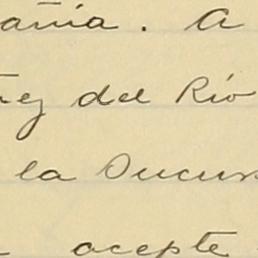 añia. A
ñez del Río
la Sucurs
acepte